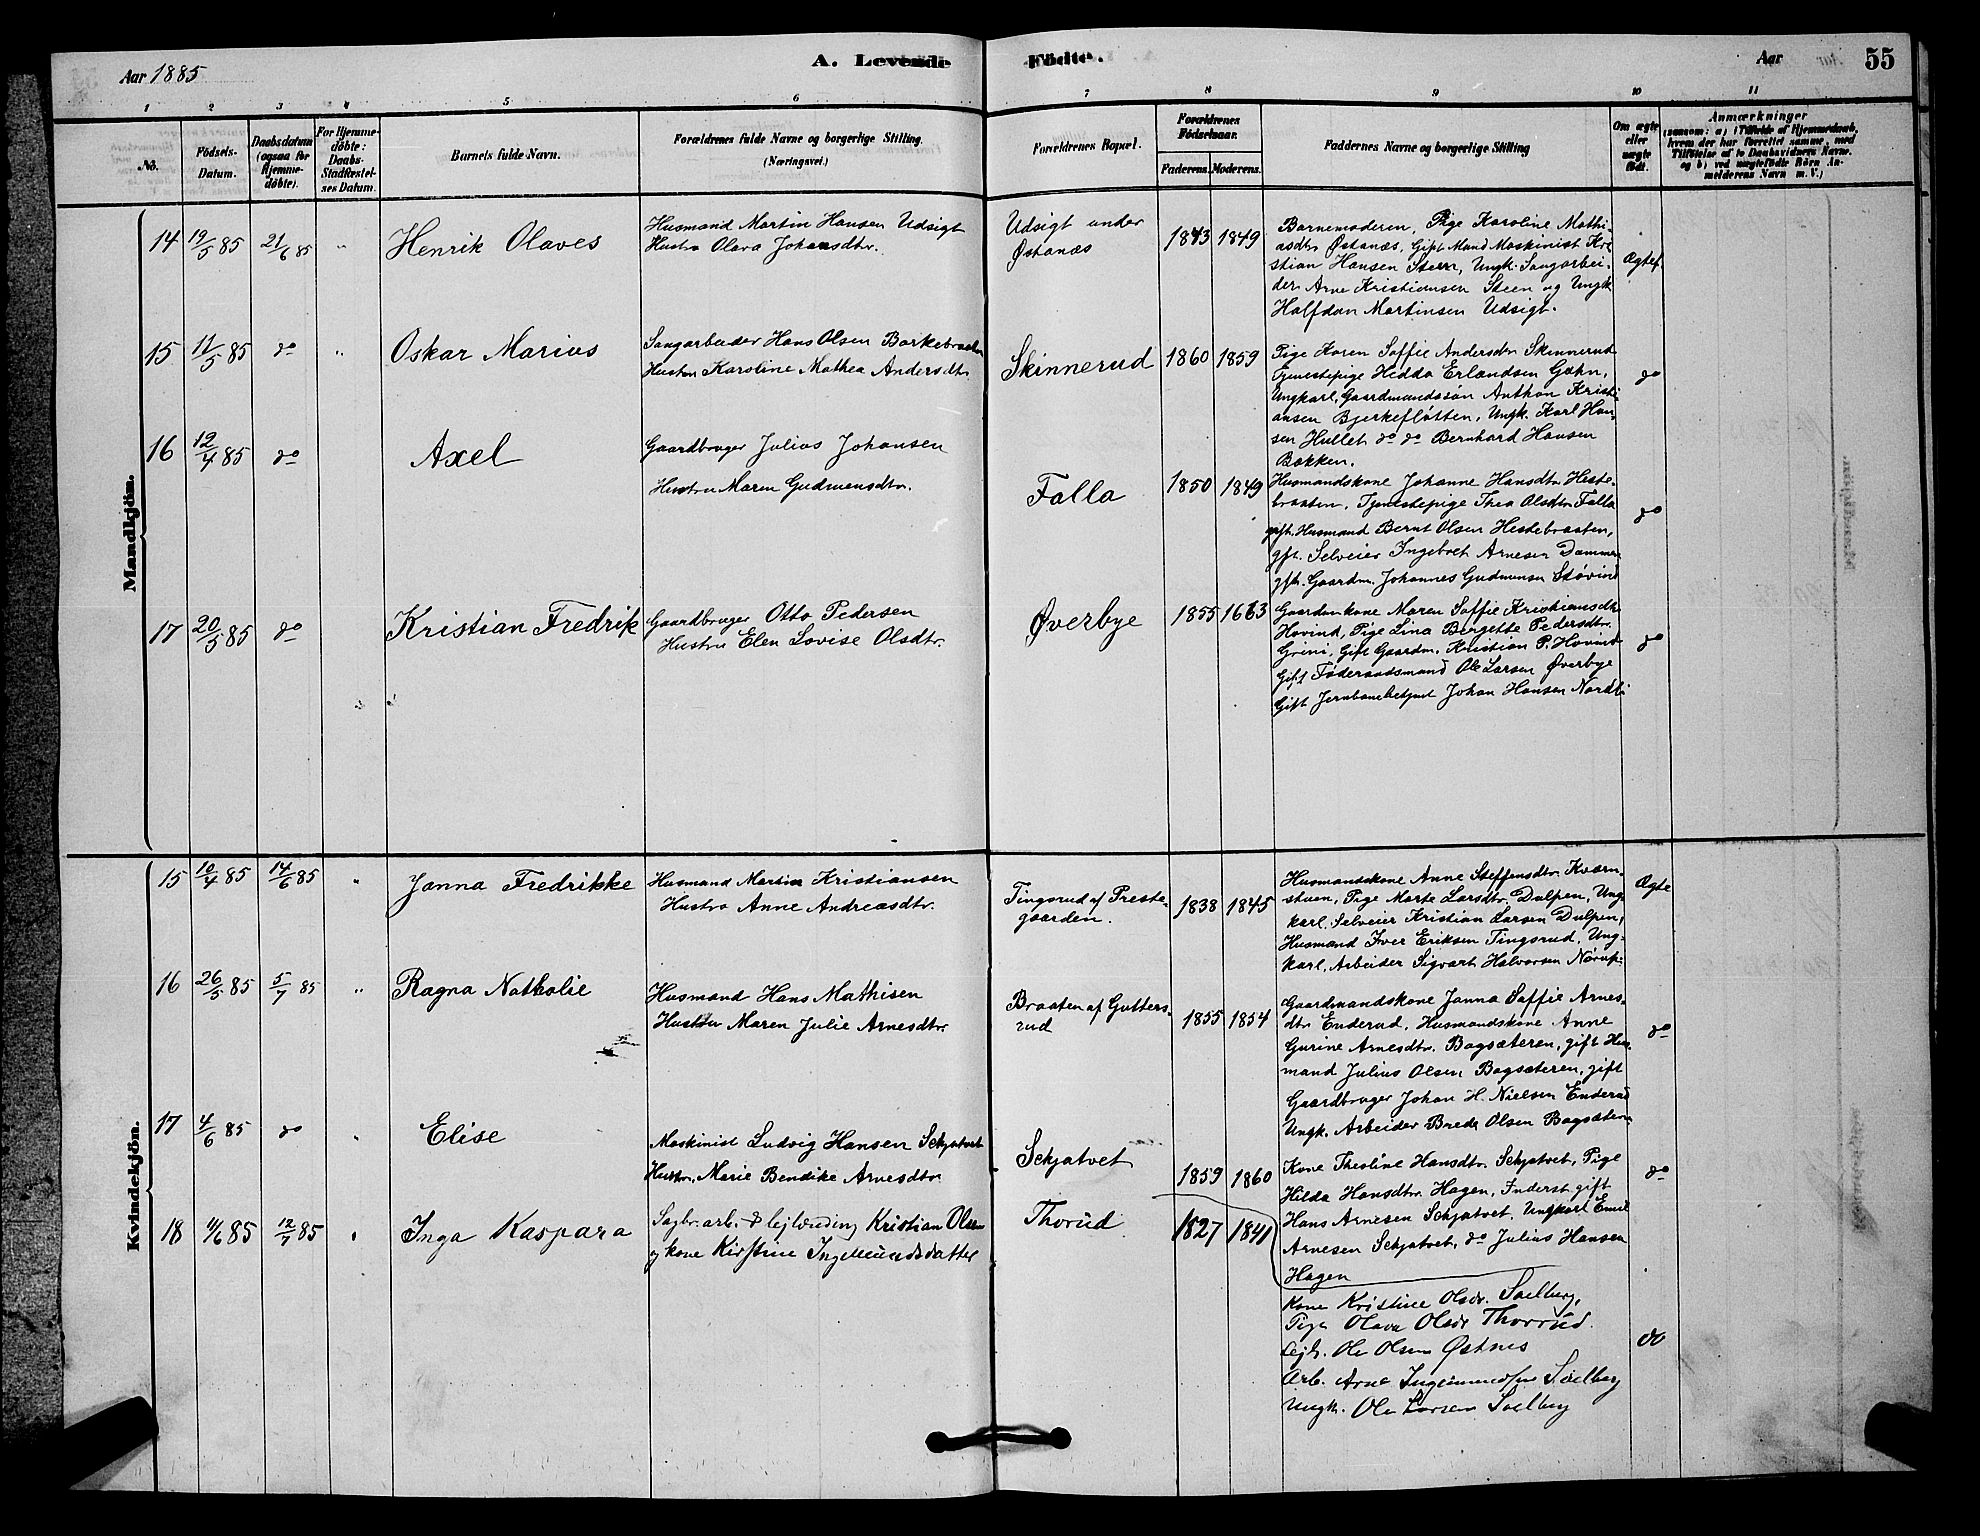 Aar 1885
A. Levende
Fødte.
Aar
55
1 2 3 4 5 6 7 8 9 10 11
No.
Födsels-Datum.
Daabsdatum (ogsaa for Hjemme-döbte).
For Hjemme-döbte: Daabs-Stadfæstel-ses Datum.
Barnets fulde Navn.
Forældrenes fulde Navne og borgerlige Stilling.
(Næringsvei.)
Forældrenes Bopæl.
Forældrenes Födselsaar.
Faderens. Moderens.
Faddernes Navne og borgerlige Stilling
Om ægte eller uægte födt.
Anmærkninger
(saasom: a) i Tilfælde af Hjemmedaab,
hvem der har forrettet samme, med
Tilföielse af to Daabsvidners Navne,
og b) ved uægtefödte Börn An-
melderens Navn m. V.)
Mandkjön.
14 19/5 85 21/6 85 " Henrik Olaves
Husmand Martin Hansen Udsigt
Hustru Olava Johansdtr.
Udsigt under
Østanæs
1843 1849
Barnemoderen, Pige Karoline Mathi-
asdtr Østanæs, Gift Mand Maskinist Kri-
stian Hansen Steen, Ungk. Saugarbei-
der Arne Kristiansen Steen og Ungk
Halfdan Martinsen Udsigt.
Ægtef.
15 11/5 85 do " Oskar Marius
Saugarbeider Hans Olsen Borkebraaten
Hustru Karoline Mathea Andersdtr.
Skinnerud
1860 1859
Pige Karen Soffie Andersdtr Skinnerud
Tjenestepige Hedda Erlandsen Gåhn,
Ungkarl, Gaardmandssøn Anthon Kristi-
ansen Bjerkefløtten, Ungk. Karl Han-
sen Hullet do do Bernhard Hansen
Bakken.
do
16 12/4 85 do Axel
Gaardbruger Julius Johansen
Hustru Maren Gudmunsdtr.
Falla
1850 1849
Husmandskone Johanne Hansdtr. Heste-
braaten, Tjenestepige Thea Olsdtr. Falla
gift. Husmand Bernt Olsen Hestebraaten,
gft. Selveier Ingebret Arnesen Dammen
gft. Gaardm. Johannes Gudmunsen Støvind
do
17 20/5 85 do Kristian Fredrik
Gaardbruger Otto Pedersen
Hustru Elen Lovise Olsdtr.
Øverbye
1855 1663
Gaardmkone Maren Soffie Kristiansdtr
Hovind, Pige Lina Bergette Pedersdtr.
Grini, Gift Gaardm. Kristian P. Hovind
Gift Føderaadsmand Ole Larsen Øverbye
Gift Jernbanebetjent Johan Hansen Nordli
do
Kvindekjön.
15 10/4 85 14/6 85 " Janna Fredrikke
Husmand Martin Kristiansen
Hustru Anne Andreasdtr.
Tingsrud af Preste-
gaarden.
1838 1845
Husmandskone Anne Steffensdtr. Kværn-
stuen, Pige Marte Larsdtr. Dulpen, Ung-
karl, Selveier Kristian Larsen Dulpen,
Husmand Iver Eriksen Tingsrud, Ung-
karl, Arbeider Sigvart Halvorsen
Ægte
16 26/5 85 5/7 85 " Ragna Nathalie
Husmand Hans Mathisen
Hustru Maren Julie Arnesdtr.
Braaten af Gutters-
rud
1855 1854
Gaardmandskone Janna Soffie Arnes-
dtr. Enderud, Husmandskone Anne
Gurine Arnesdtr. Bagsæteren, gift Hus-
mand Julius Olsen Bagsæteren, gift
Gaardbruger Johan H. Nielsen Enderud
Ungk. Arbeider Brede Olsen Bagsætern
do
17 4/6 85 do " Elise
Maskinist Ludvig Hansen Schjatvet
Hustru, Marie Bendike Arnesdtr.
Schjatvet
1859 1860
Kone Theoline Hansdtr. Schjatvet, Pige
Hilda Hansdtr. Hagen, Inderst gift
Hans Arnesen Schjatvet, Ungkarl Emil
Arnesen Schjatvet, do Julius Hansen
Hagen
do
18 11/6 85 12/7 85 " Inga Kaspara
Sagbr. arb. & lejlænding Kristian Olsen
og kone Kirstine Ingemundsdatter
Thorud
1827 1841
Kone Kristine Olsdr. Soelberg,
Pige Olava Olsdr Thorrud.
Lejl. Ole Olsen Østnes
Arb. Arne Ingemundsen Soelberg
Ungk. Ole Larsen Soelberg
do